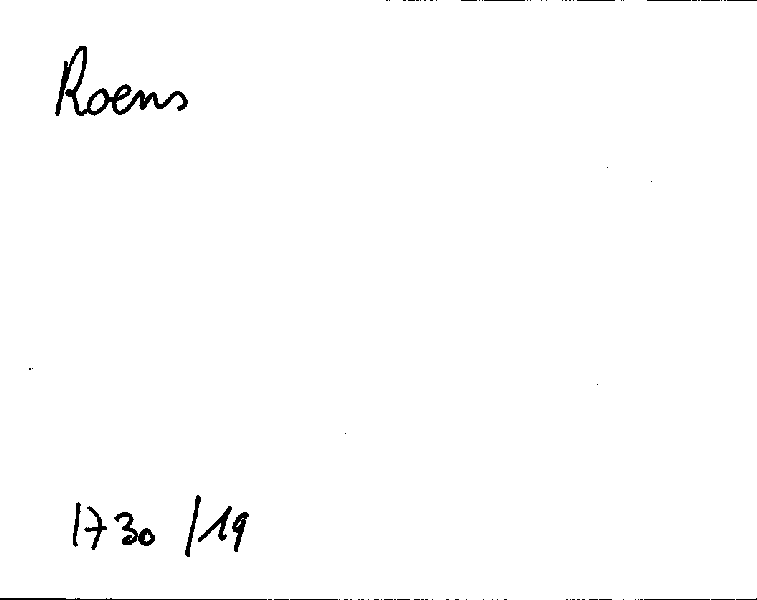 Roens
1730 /19